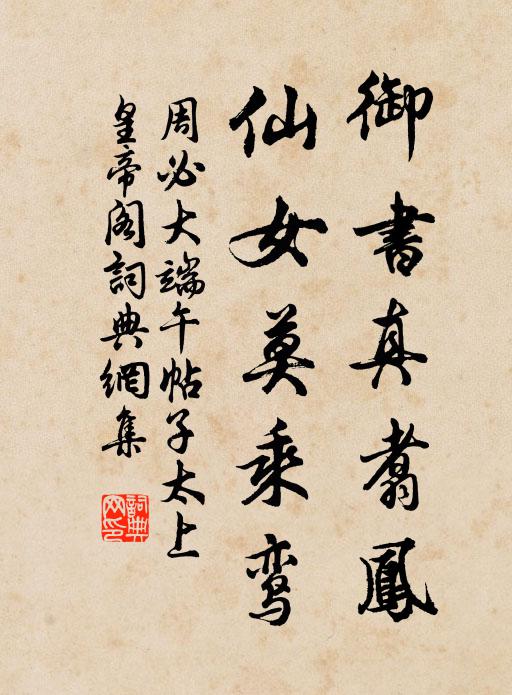 御書真翥鳳
仙女莫乘鸾
周必大端午帖子太上
皇帝阁詞典網集
詞典网印